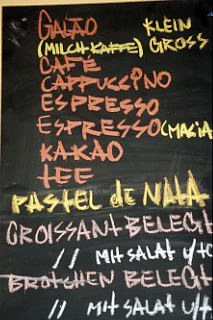 GALÃO KLEIN
(MILCHKAFFE) GROSS
CAFÉ
CAPPUCCINO
ESPRESSO
ESPRESSO (MACIA
KAKAO
TEE
PASTEL de NATA
CROISSANT BELEGT
// MIT SALAT u/TO
BRÖTCHEN BELEGT
// MIT SALAT u/T